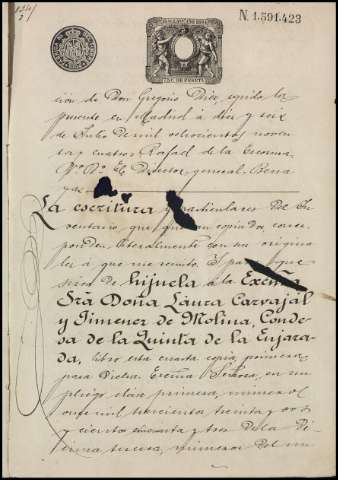 N. 1.591.423
ción de Don Gregorio Pérez, expido la
presente en Madrid á diez y seis
de Julio de mil ochocientos noven
ta y cuatro. Rafael de la Escosura.
Vº Bº El Director general. Bena
La escritura y particulares del in
ventario, que quedan copiados, corres
ponden literalmente con su origina
les á que me remito. Y para que
sirva de hijuela á la Excma.
Srа Doña Laura Carvajál
y Jimenez de Molina, Conde
sa de la Quinta de la Enjara
da, libro esta cuarta copia, primera
para dicha Excma Señora, en un
pliego clase primera, número
once mil trescientos treinta y dos
y ciento cincuenta y tres de la dé
cima tercera, números del un